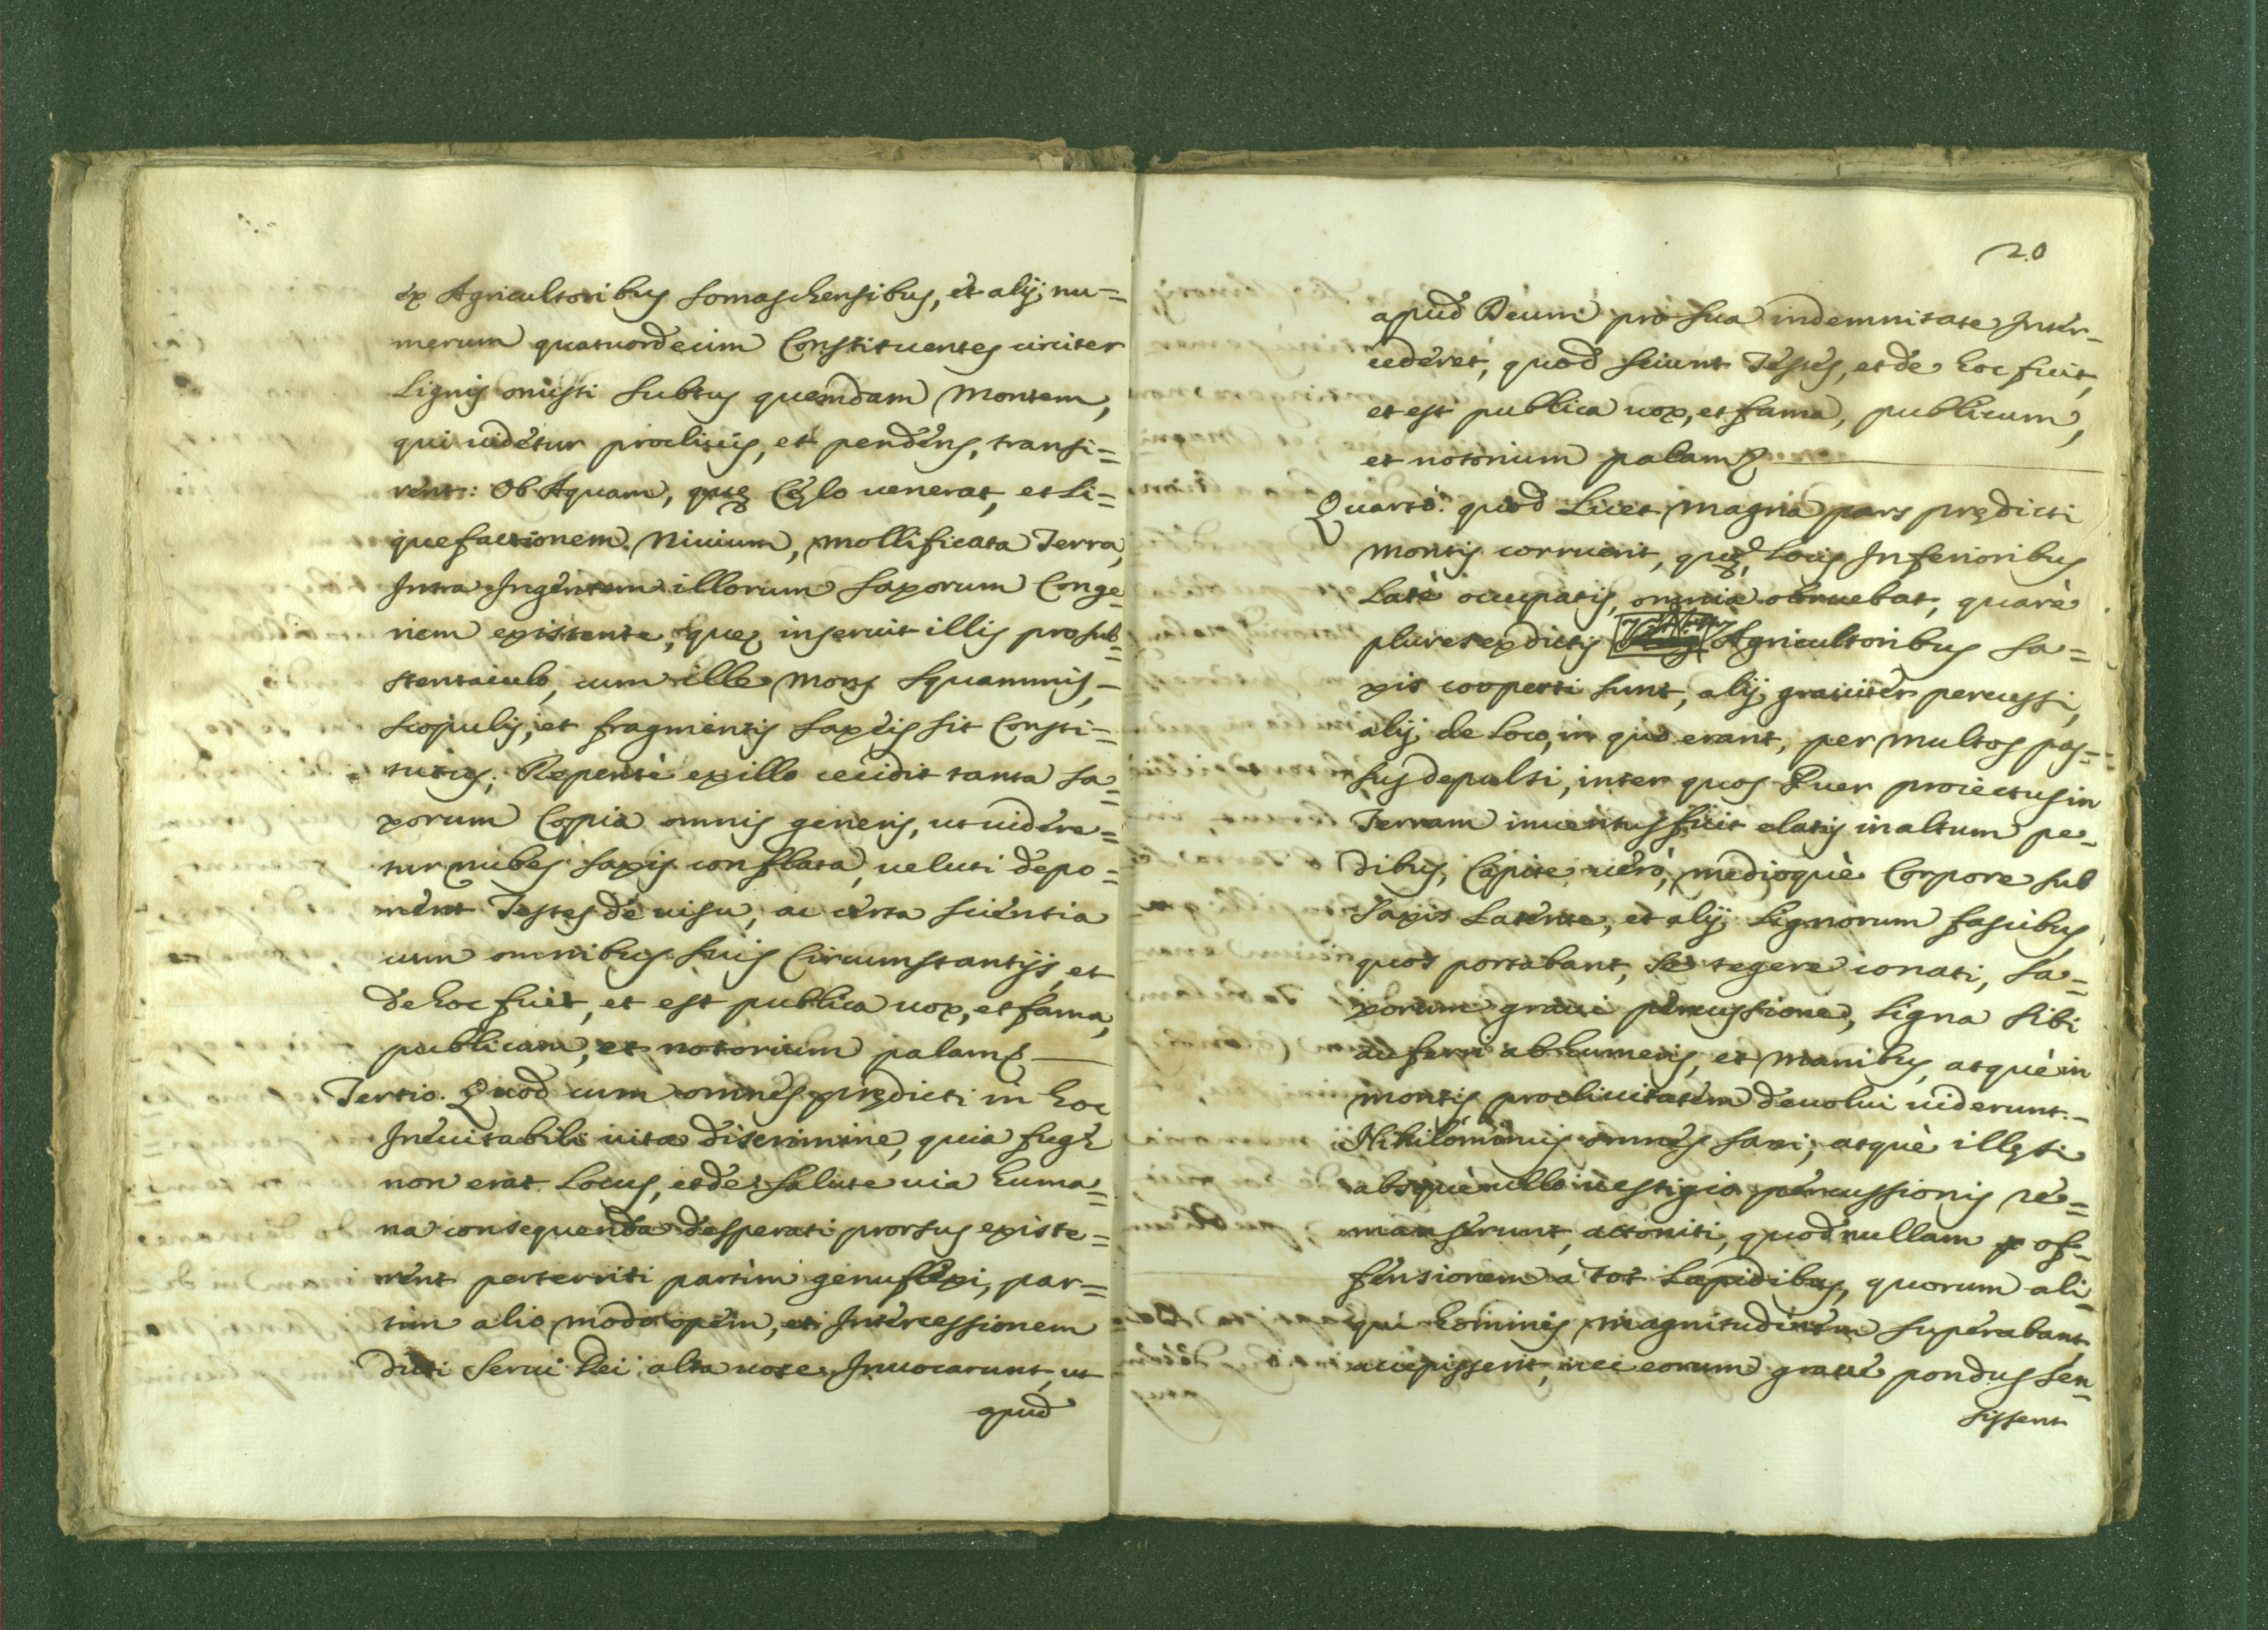 ex Agricultoribus somaschensibus, et alij, nu=
merum quatuordecim Constituentes circiter
Lignis onusti subtus quemdam Montem,
qui uidetur procliuis, et pendens, transi=
rent: Ob Aquam, quę Cęlo uenerat, et Li=
quefactionem Niuium, mollificata Terra,
Intra Ingentem illorum saxorum Conge=
riem existente, quę inseruit illis pro sub=
stentaculo, cum ille Mons squammis,
scopulis, et fragmentis saxeis sit Consti=
tutus; Repentè ex illo cecidit tanta sa=
xorum Copia omnis generis, ut uidere=
tur nubes saxis conflata, ueluti depo=
nent Testes de uisu, ac certa scientia
cum omnibus suis Circumstantijs, et
de hoc fuit, et est publica uox, et fama,
publicum, et notorium palam
Tertio. Quod cum omnes prędicti in hoc
Ineuitabili uitæ discrimine, quia fugę
non erat Locus, et de salute uia huma=
na consequenda desperati prorsus existe=
rent perterriti partim genuflexi, par=
tim alio modo opem, et Intercessionem
dicti serui Dei alta uoce Inuocarunt, ut
apud
20
apud Deum pro sua indemnitate Inter=
cederet, quod sciunt Testes, et de hoc fuit,
et est publica uox, et fama, publicum,
et notorium palam
Quartò. quod Licet magna pars prędicti
Montis corruerit, quę, Locis Inferioribus
Latè occupatis, omnia obruebat, quarè
plures ex dictis Agricultoribus sa=
xis cooperti sunt, alij grauiter percussi,
alij de Loco, in quo erant, per multos pas=
sus depulsi, inter quos Puer proiectus in
Terram inuentus fuit elatis in altum pe=
dibus, Capite uerò, medioquè Corpore sub
saxis Latente, et alij Lignorum fascibus,
quos portabant, se tegere conati, sa=
xorum graui percussione, Ligna sibi
auferri ab humeris, et manibus, atquè in
montis procliuitatem deuolui uiderunt.
Nihilominus omnes sani, atquè illęsi
absquè ullo uestigio percussionis re=
manserunt, attoniti, quod nullam of=
fensionem à tot Lapidibus, quorum ali=
qui hominis magnitudinem superabant
accepissent, nec eorum graue pondus sen=
sissent